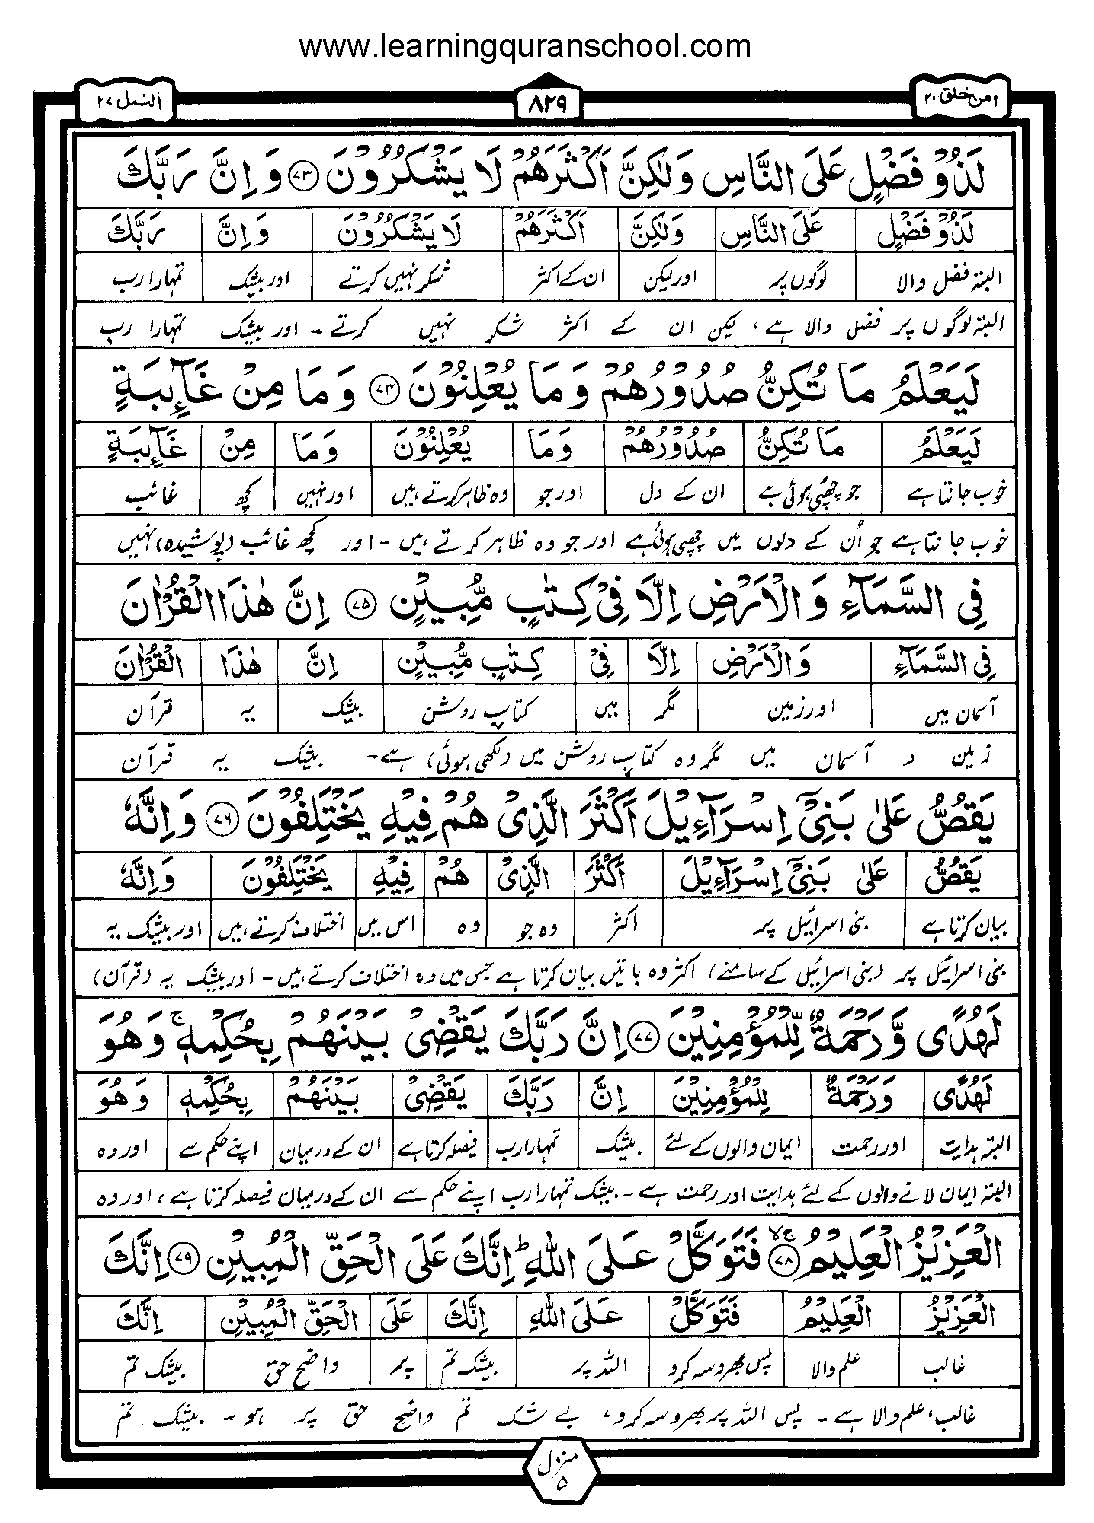 www.learningquranschool.com
امن خلق ۲۰
۸۲۹
النمل ۲۷
لَذُوْ فَضْلٍ عَلَى النَّاسِ وَلٰكِنَّ اَكْثَرَهُمْ لَا يَشْكُرُوْنَ ﴿۷۳﴾ وَ اِنَّ رَبَّكَ
لَذُوْ فَضْلٍ عَلَى النَّاسِ وَلٰكِنَّ اَكْثَرَهُمْ لَا يَشْكُرُوْنَ وَ اِنَّ رَبَّكَ
البتہ فضل والا لوگوں پر اور لیکن ان کے اکثر شکر نہیں کرتے اور بیشک تمہارا رب
البتہ لوگوں پر فضل والا ہے، لیکن ان کے اکثر شکر نہیں کرتے ۔ اور بیشک تمہارا رب
لَيَعْلَمُ مَا تُكِنُّ صُدُوْرُهُمْ وَمَا يُعْلِنُوْنَ ﴿۷۴﴾ وَمَا مِنْ غَآئِبَةٍ
لَيَعْلَمُ مَا تُكِنُّ صُدُوْرُهُمْ وَمَا يُعْلِنُوْنَ وَمَا مِنْ غَآئِبَةٍ
خوب جانتا ہے جو چھپی ہوئی ہے ان کے دل اور جو وہ ظاہر کرتے ہیں اور نہیں کچھ غائب
خوب جانتا ہے جو اُن کے دلوں میں چھپی ہوئی ہے اور جو وہ ظاہر کرتے ہیں ۔ اور کچھ غائب (پوشیدہ) نہیں
فِى السَّمَآءِ وَالْاَرْضِ اِلَّا فِىْ كِتٰبٍ مُّبِيْنٍ ﴿۷۵﴾ اِنَّ هٰذَا الْقُرْاٰنَ
فِى السَّمَآءِ وَالْاَرْضِ اِلَّا فِىْ كِتٰبٍ مُّبِيْنٍ اِنَّ هٰذَا الْقُرْاٰنَ
آسمان میں اور زمین مگر میں کتاب روشن بیشک یہ قرآن
زمین و آسمان میں مگر وہ کتاب روشن میں (لکھی ہوئی) ہے۔ بیشک یہ قرآن
يَقُصُّ عَلٰى بَنِىْٓ اِسْرَآءِيْلَ اَكْثَرَ الَّذِىْ هُمْ فِيْهِ يَخْتَلِفُوْنَ ﴿۷۶﴾ وَاِنَّهٗ
يَقُصُّ عَلٰى بَنِىْٓ اِسْرَآءِيْلَ اَكْثَرَ الَّذِىْ هُمْ فِيْهِ يَخْتَلِفُوْنَ وَاِنَّهٗ
بیان کرتا ہے بنی اسرائیل پر اکثر وہ جو وہ اس میں اختلاف کرتے ہیں اور بیشک یہ
بنی اسرائیل پر (بنی اسرائیل کے سامنے) اکثر وہ باتیں بیان کرتا ہے جس میں وہ اختلاف کرتے ہیں ۔ اور بیشک یہ (قرآن)
لَهُدًى وَّرَحْمَةٌ لِّلْمُؤْمِنِيْنَ ﴿۷۷﴾ اِنَّ رَبَّكَ يَقْضِىْ بَيْنَهُمْ بِحُكْمِهٖ ۚ وَهُوَ
لَهُدًى وَرَحْمَةٌ لِلْمُؤْمِنِيْنَ اِنَّ رَبَّكَ يَقْضِىْ بَيْنَهُمْ بِحُكْمِهٖ وَهُوَ
البتہ ہدایت اور رحمت ایمان والوں کے لئے بیشک تمہارا رب فیصلہ کرتا ہے ان کے درمیان اپنے حکم سے اور وہ
البتہ ایمان لانے والوں کے لئے ہدایت اور رحمت ہے ۔ بیشک تمہارا رب اپنے حکم سے ان کے درمیان فیصلہ کرتا ہے، اور وہ
الْعَزِيْزُ الْعَلِيْمُ ﴿۷۸﴾ فَتَوَكَّلْ عَلَى اللّٰهِ ؕ اِنَّكَ عَلَى الْحَقِّ الْمُبِيْنِ ﴿۷۹﴾ اِنَّكَ
الْعَزِيْزُ الْعَلِيْمُ فَتَوَكَّلْ عَلَى اللّٰهِ اِنَّكَ عَلَى الْحَقِّ الْمُبِيْنِ اِنَّكَ
غالب علم والا پس بھروسہ کرو اللہ پر بیشک تم پر واضح حق بیشک تم
غالب، علم والا ہے ۔ پس اللہ پر بھروسہ کرو، بے شک تم واضح حق پر ہو ۔ بیشک تم
منزل ۵